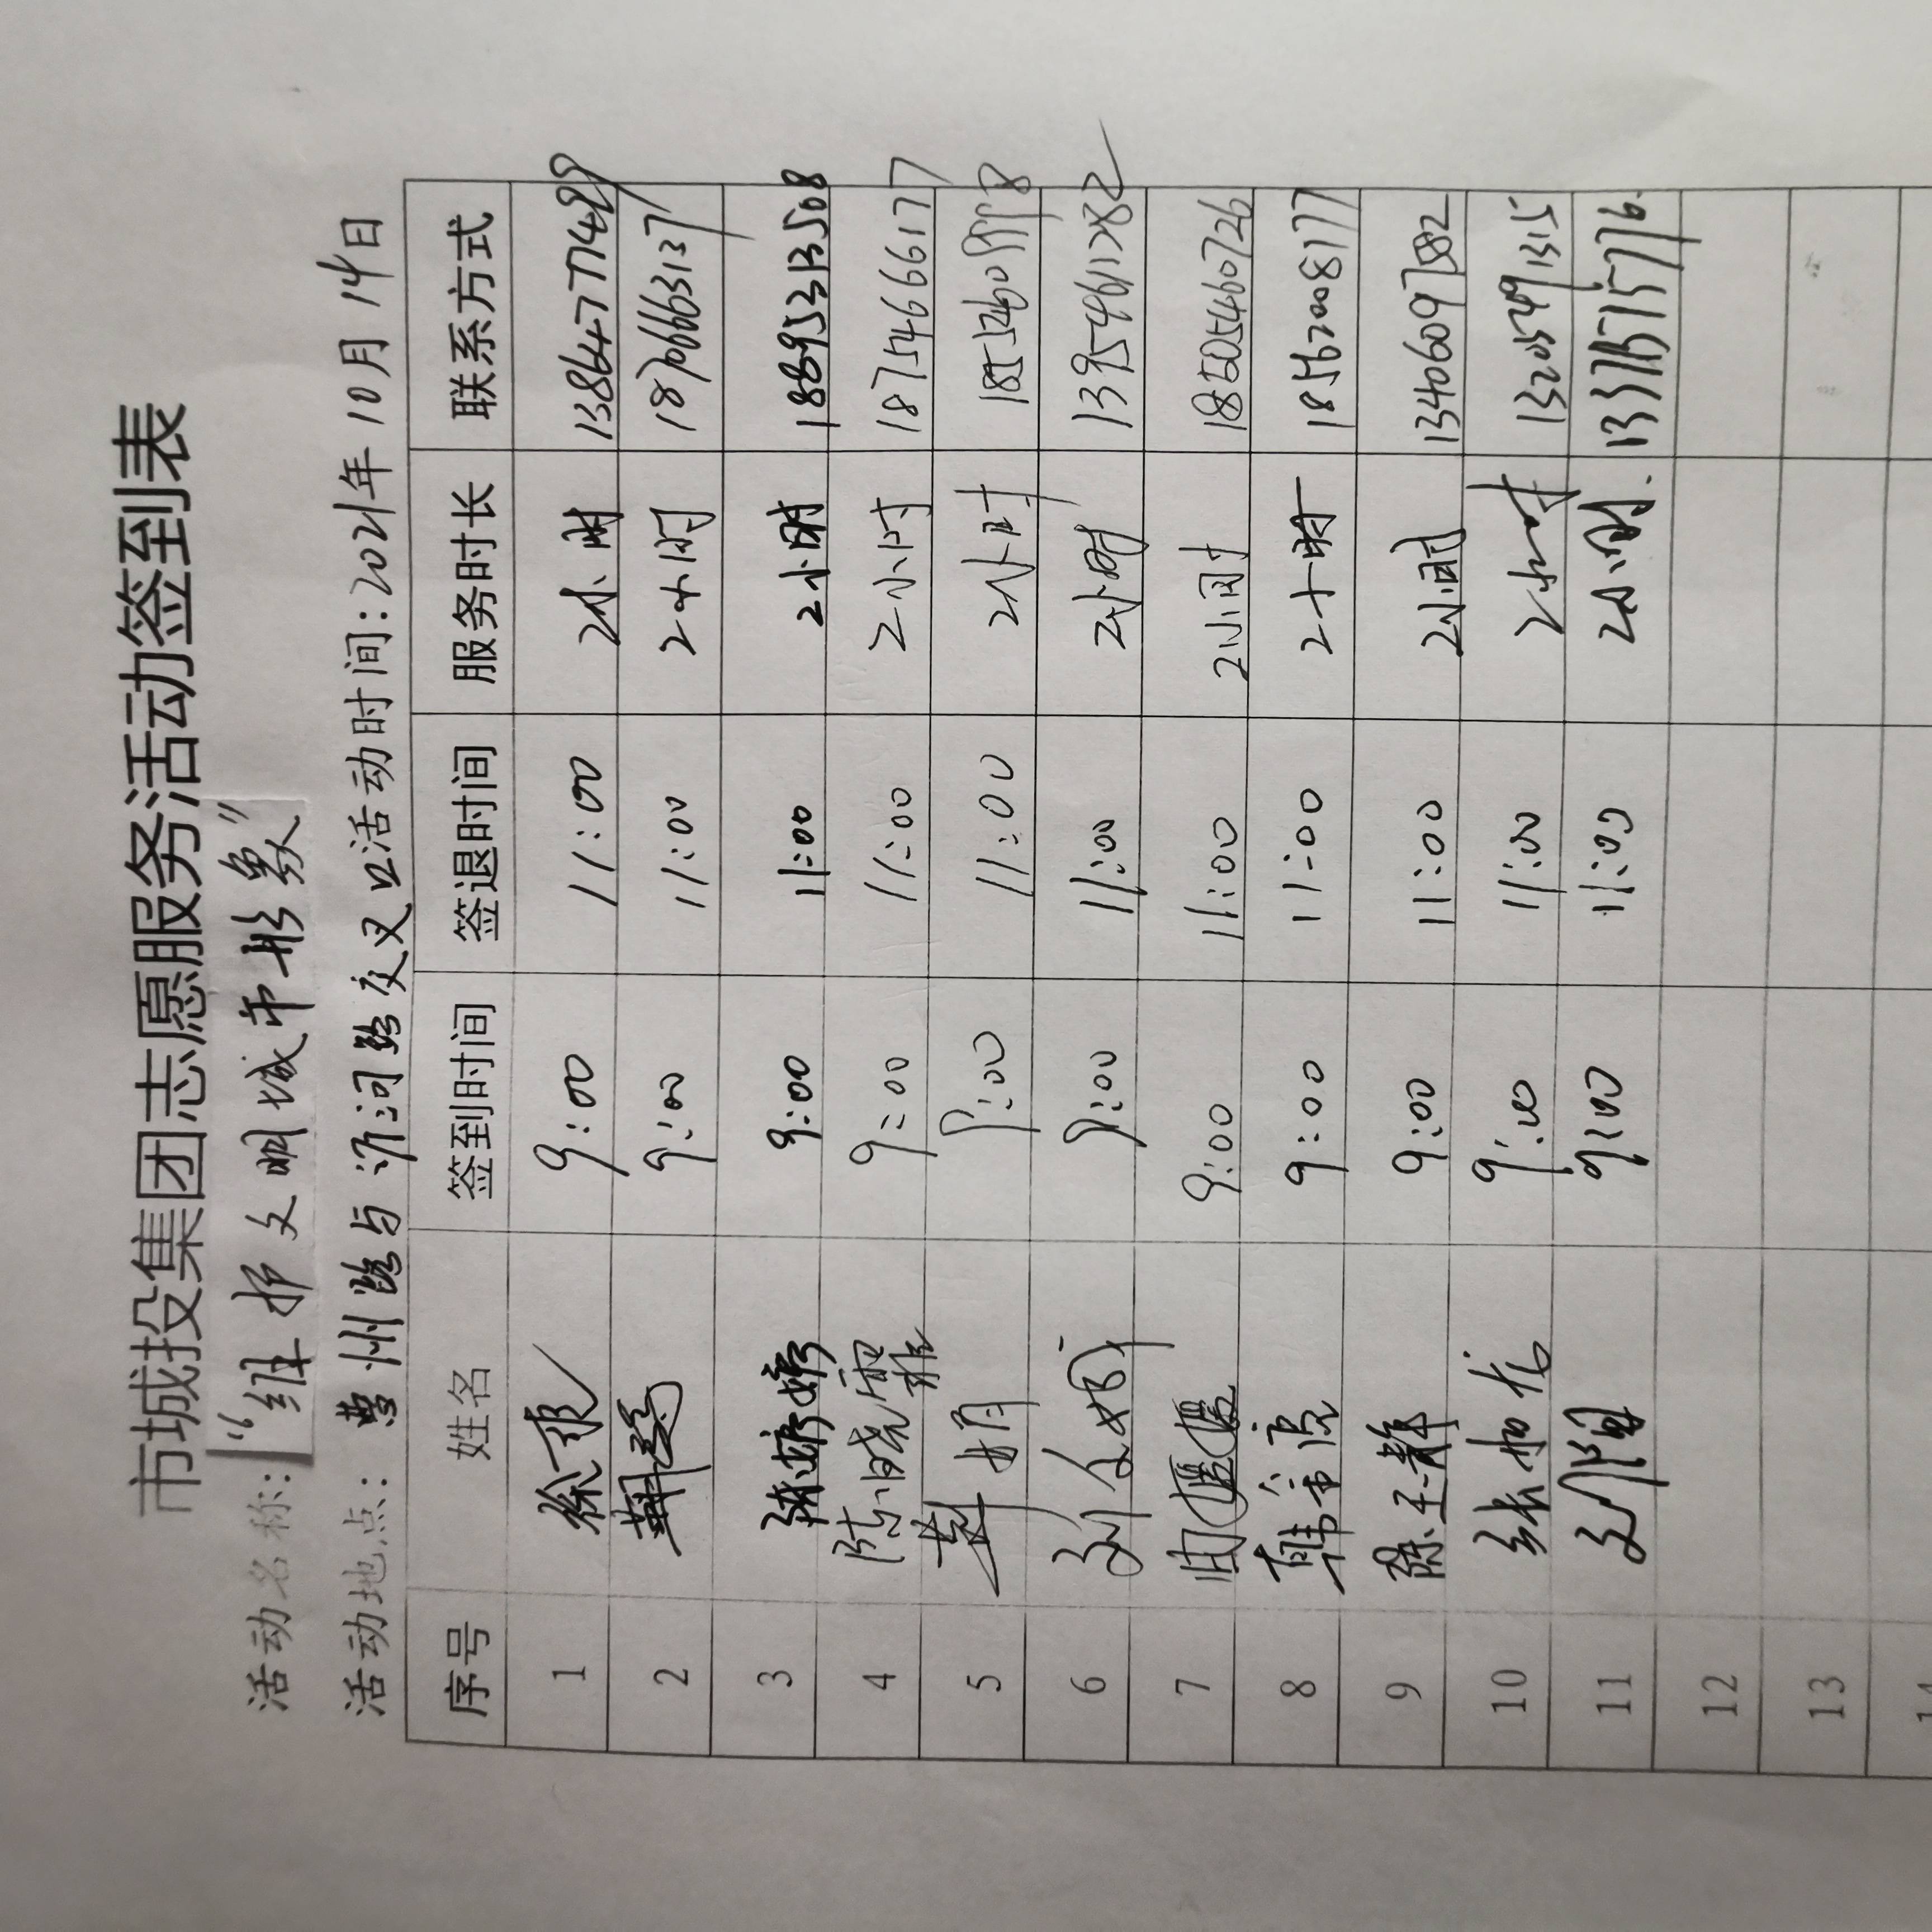 市城投集团志愿服务活动签到表
活动名称:“维护文明城市形象”
活动地点:曹州路与沂河路交叉口活动时间:2021年10月14日
序号 姓名 签到时间 签退时间 服务时长 联系方式
1 9:00 11:00 2小时
2 9:00 11:00 2小时 18706663137
3 9:00 11:00 2小时 18895313508
4 陈晓霏 9:00 11:00 2小时 18754666177
5 9:00 11:00 2小时
6 9:00 11:00 2小时 13954611282
7 9:00 11:00 2小时 18605460726
8 韩希亮 9:00 11:00 2小时 18562008177
9 陈玉静 9:00 11:00 2小时 13406097882
10 9:00 11:00 2小时 13205491315
11 9:00 11:00 2小时
12
13
14